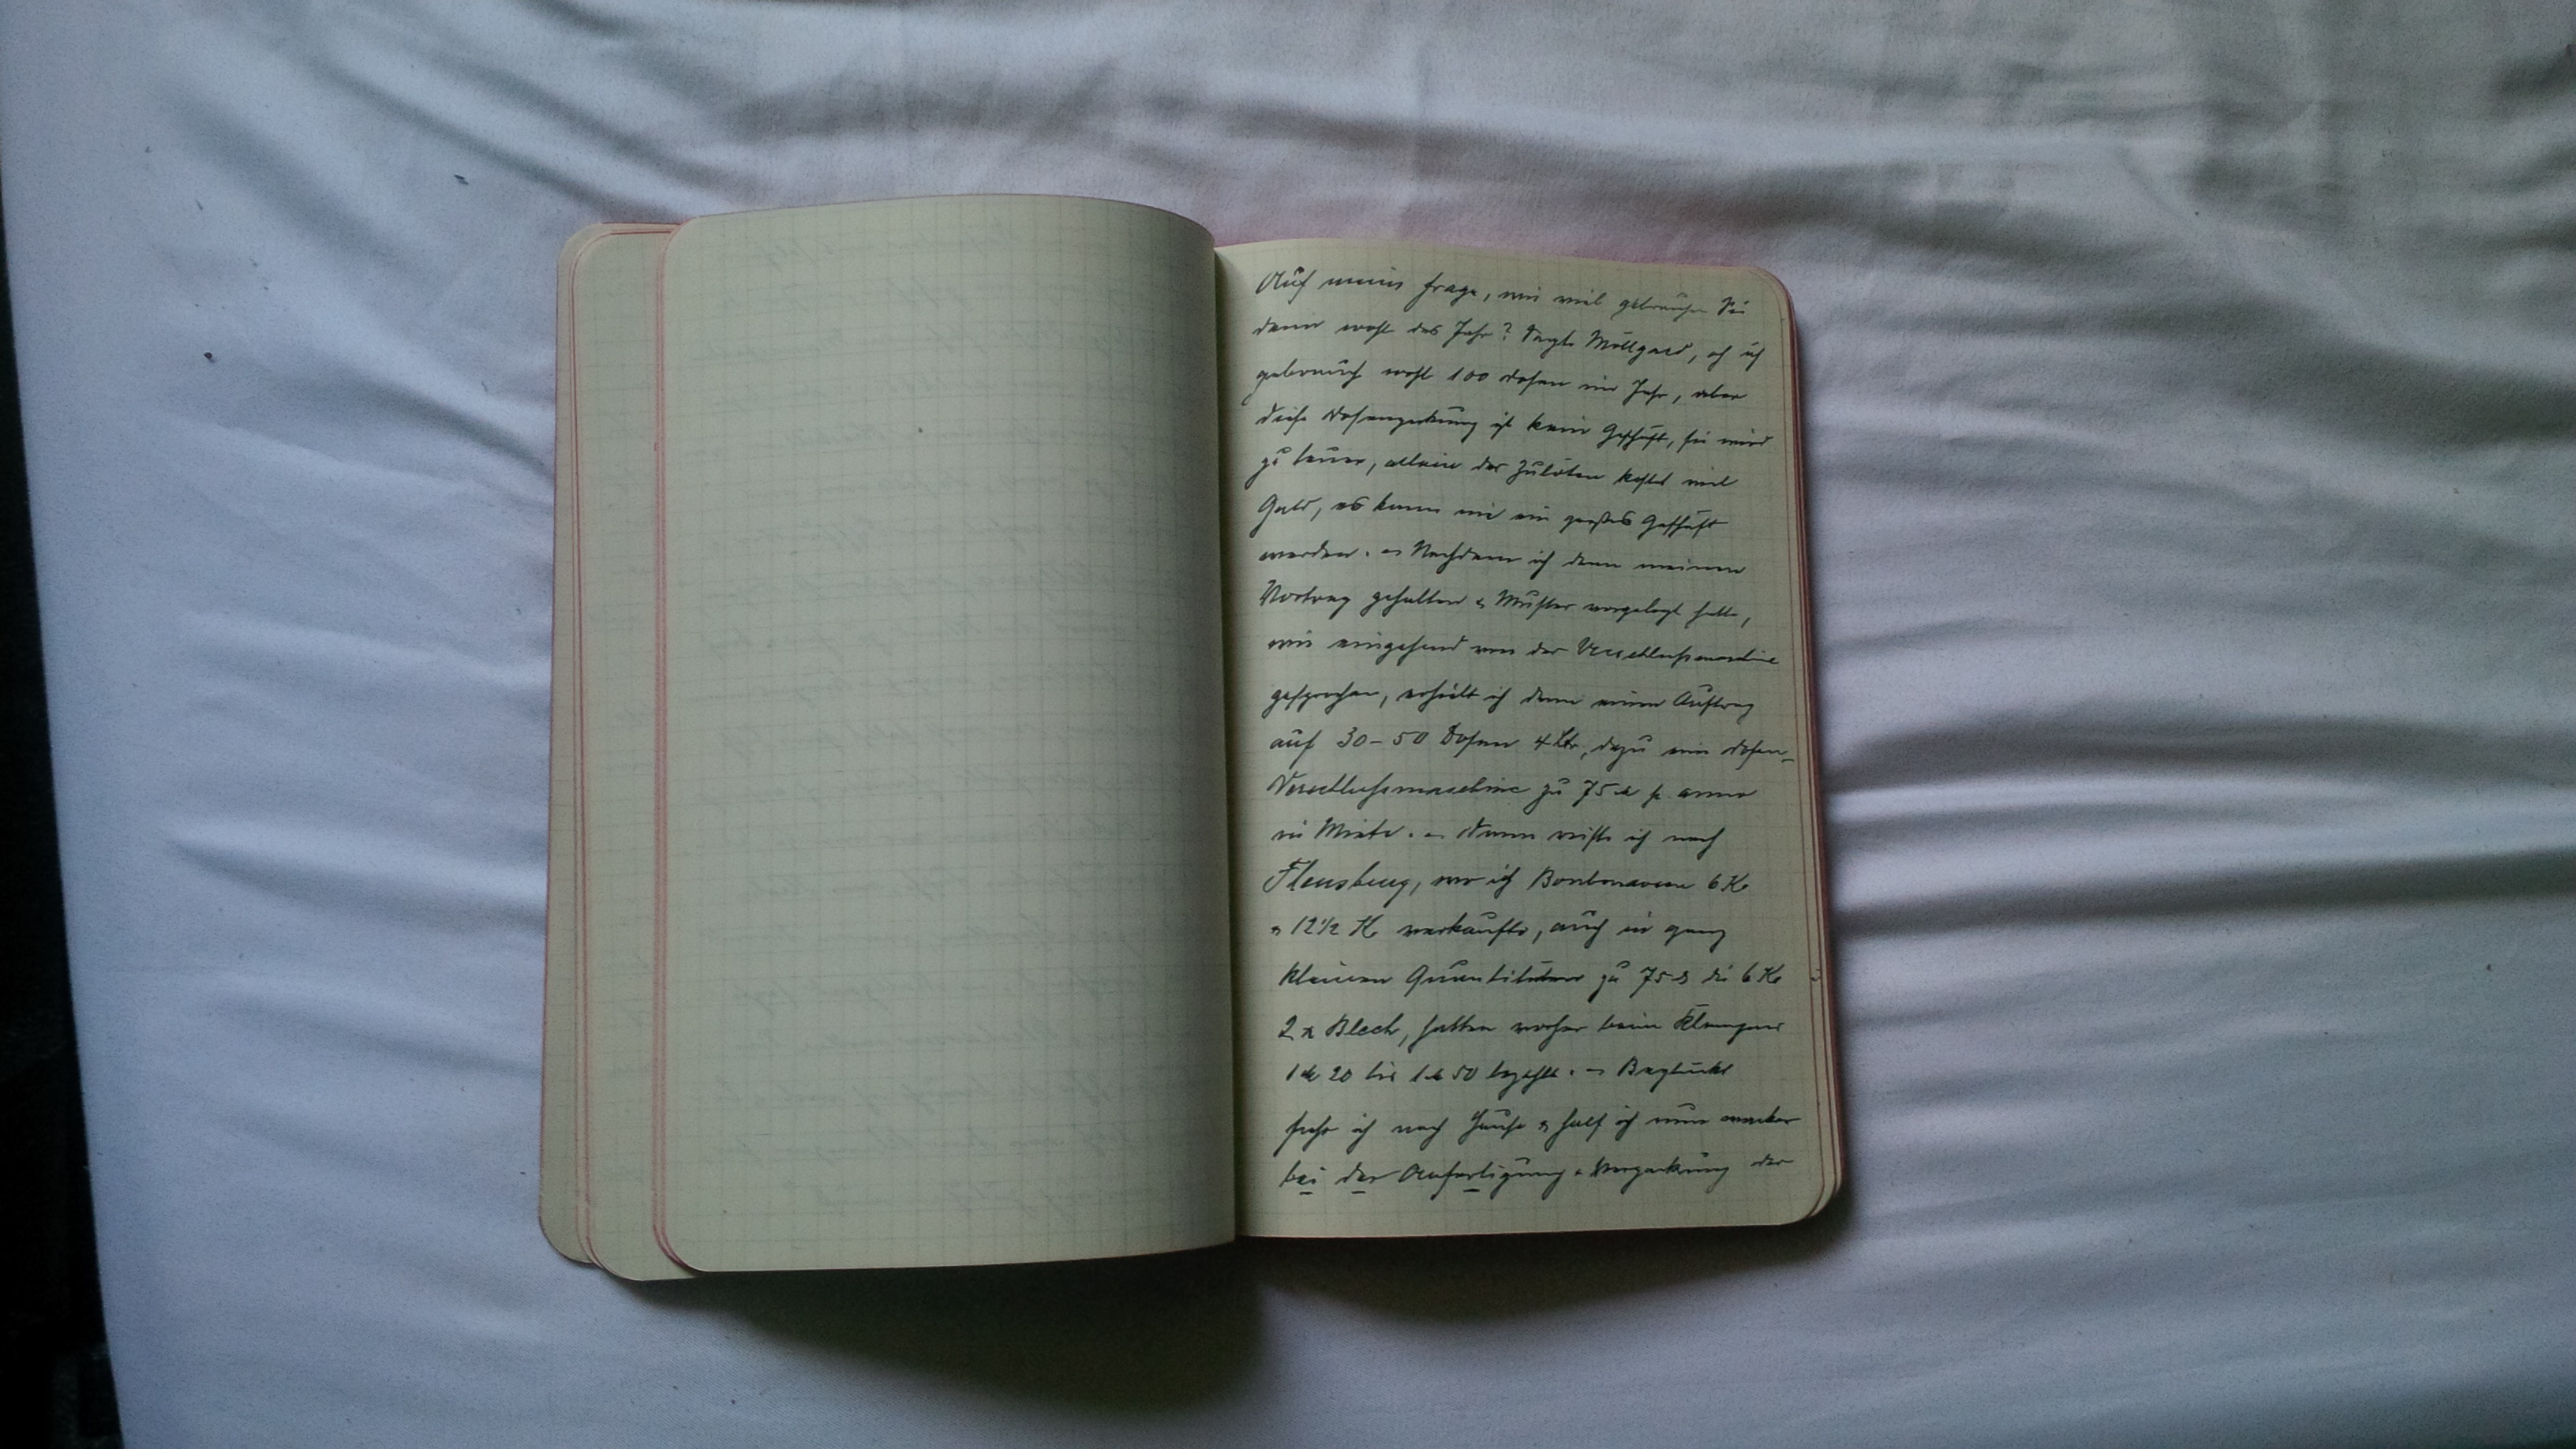 Auf meine Frage, wie viel gebrauchen Sie
denn wohl das Jahr? Sagte Möllgard, och ich
gebrauch wohl 100 Dosen im Jahr, aber
diese Dosenpackung ist kein Geschäft, sie wird
zu teuer, alleine das Zulöten kostet viel
Geld, es kann nie ein großes Geschäft
werden. – Nachdem ich dann meinen
Vortrag gehalten & Muster vorgelegt hatte,
wie eingehend von der Verschlussmaschine
gesprochen, erhielt ich dann einen Auftrag
auf 30–50 Dosen 4 Ltr, dazu eine Dosen-
Verschlussmaschine zu 75 M p. anno
in Miete. – Dann reiste ich nach
Flensburg, wo ich 6 Ko
& 12 1/2 Ko verkaufte, auch in ganz
kleinen Quantitäten zu 75 ₰ die 6 Ko
2 x Blech, hatten vorher beim Klempner
1 M 20 bis 1 M 50 bezahlt. – Beglückt
fuhr ich nach Hause & half ich nun wacker
bei der Anfertigung & Verpackung der